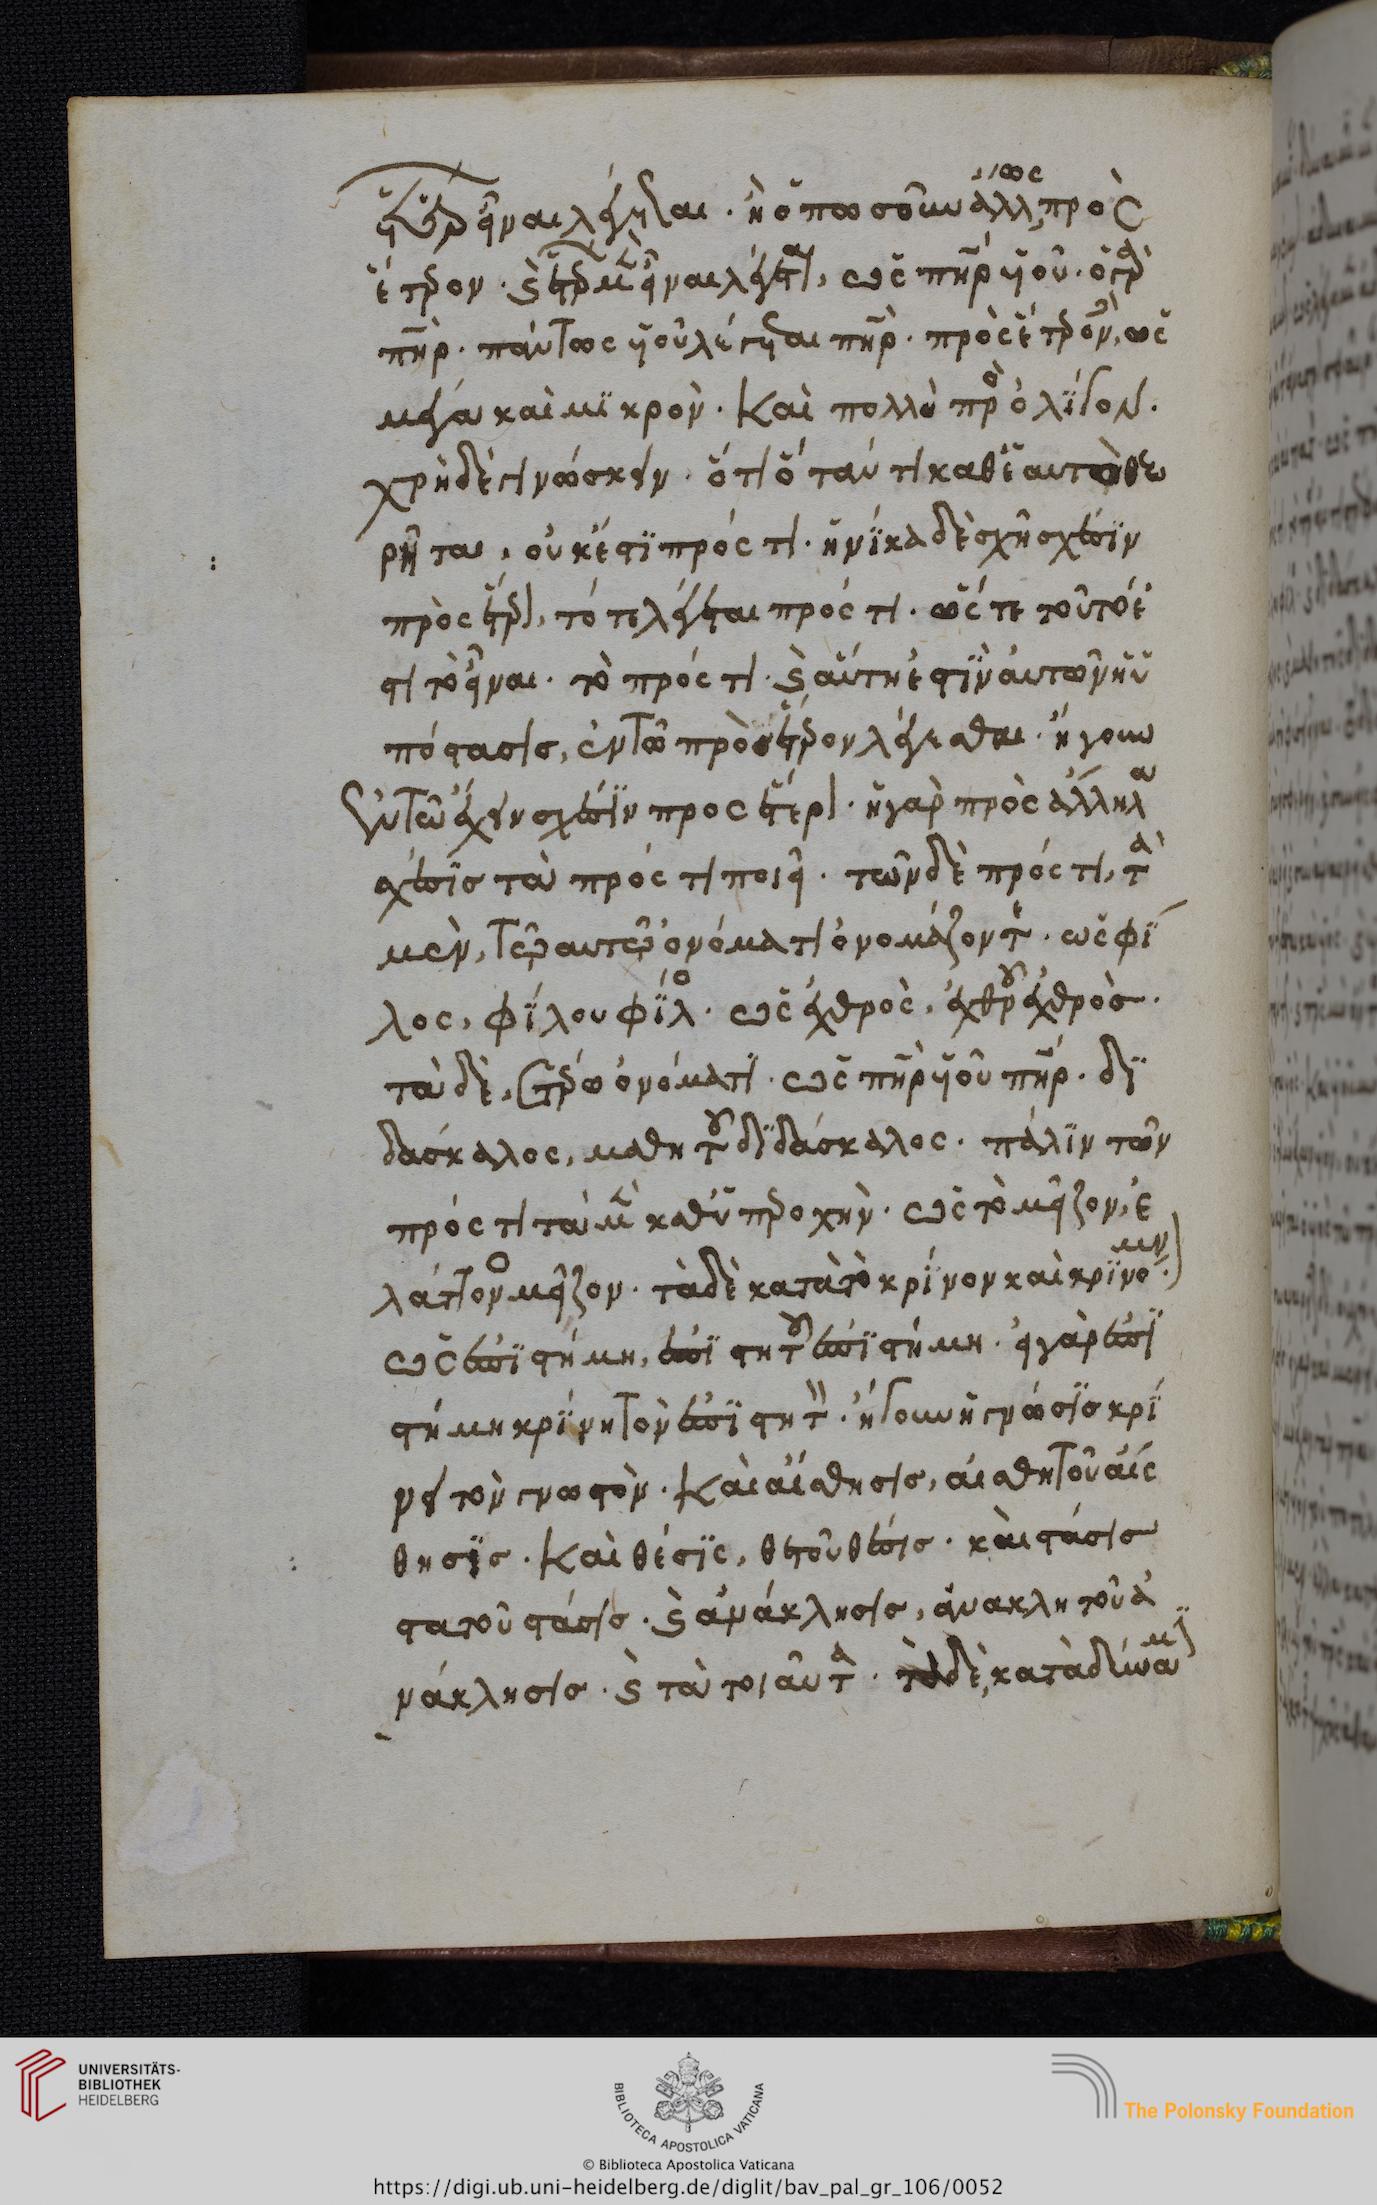 εἶναι λέγεται · ἢ ὁπωσοῦν ἄλλως πρὸς
ἕτερον · καὶ ἑτέρων μὲν εἶναι λέγεται, ὡς πῆρ υἱοῦ · ὁ γὰρ
πῆρ · πάντως υἱοῦ λέγεται πῆρ · πρὸς ἕτερον δὲ, ὡς
μέγα καὶ μικρὸν · Καὶ πολλὰ πρὸς ὀλίγον ·
χρὴ δὲ γινώσκειν · ὅτι ὅταν τι καθ' ἑαυτὸ θεω
ρῆται, οὐκ ἔστι πρός τι · ἡνίκα δὲ σχῇ σχέσιν
πρὸς ἕτερον, τότε λέγεται πρός τι · ὥστε τοῦτό ἐ
στι τὸ εἶναι · τὸ πρός τι · καὶ αὕτη ἐστὶν αὐτῶν ἡ ὑ
πόστασις, ἐν τῶ πρὸς ἕτερον λέγεσθαι · ἤγουν
ἐν τῶ ἔχειν σχέσιν προς ἕτερον · ἡ γὰρ πρὸς ἄλληλα
σχέσις τὰ πρός τι ποιεῖ · τῶν δὲ πρός τι, τὰ
μὲν, τῶ αυτῶ ὀνόματι ὀνομάζονται · ὡς φί
λος, φίλου φίλος · ὡς ἐχθρὸς, ἐχθροῦ ἐχθρὸς ·
τὰ δὲ, ἑτέρω ὀνόματι · ὡς πῆρ υἱοῦ πῆρ · δι
δάσκαλος, μαθητοῦ διδάσκαλος · πάλιν τῶν
πρός τι τὰ μὲν καθ' ὑπεροχὴν · ὡς τὸ μεῖζον, ἐ
λάττονος μεῖζον · τὰ δὲ κατὰ τὸ κρίνον καὶ κρινόμενον ·
ὡς ἐπιστήμη, ἐπιστητοῦ ἐπιστήμη · ἡ γὰρ ἐπι
στήμη κρίνει τὸν ἐπιστητὴν · ἤγουν ἡ γνώσις κρί
νει τὸν γνωστὸν · Καὶ αἴσθησις, αἰσθητοῦ αἴσ
θησις · Καὶ θέσις, θετοῦ θέσις · καὶ στάσις
στατοῦ στάσις · καὶ ἀνάκλησις, ἀνακλητοῦ ἀ
νάκλησις · καὶ τὰ τοιαῦτα · τὰ δὲ, κατὰ δύναμιν

UNIVERSITÄTS-
BIBLIOTHEK
HEIDELBERG
BIBLIOTECA APOSTOLICA VATICANA
The Polonsky Foundation
© Biblioteca Apostolica Vaticana
https://digi.ub.uni-heidelberg.de/diglit/bav_pal_gr_106/0052